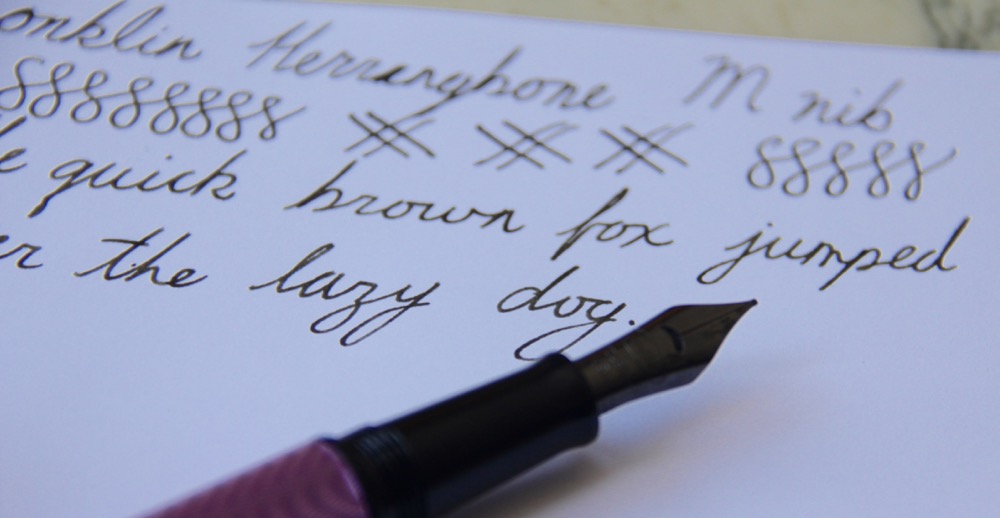 onklin Herrangbone M nib
88888888 ⋕ ⋕ ⋕ 88888
e quick brown fox jumped
er the lazy dog.